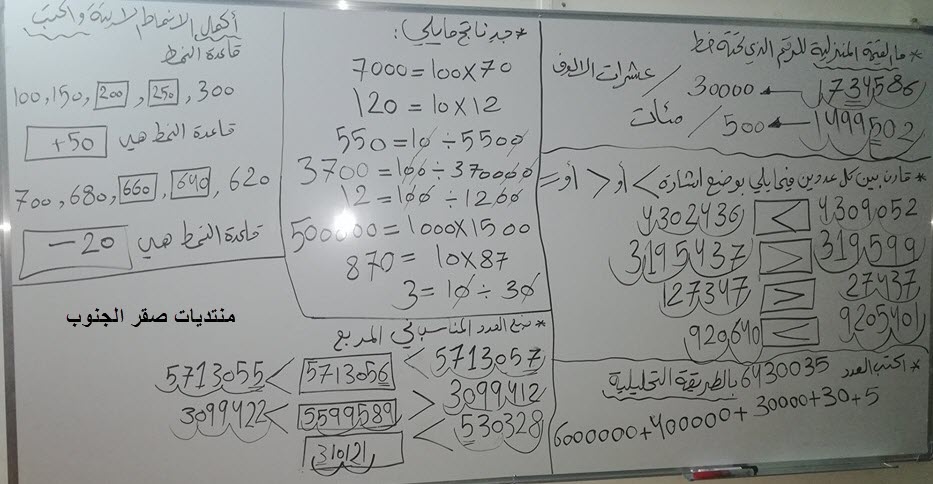 * ما القيمة المنزلية للرقم الذي تحته خط
1734586 ← 30000 / عشرات الالوف
1499502 ← 500 / مئات
* قارن بين كل عددين فيما يلي بوضع اشارة > أو < أو =
4302436 > 4309052
3195437 > 319599
127347 > 27437
920640 > 9205401
* اكتب العدد 6430035 بالطريقة التحليلية
6000000+400000+30000+30+5
* جد ناتج مايلي :
7000=100×70
120=10×12
550=10÷5500
3700=100÷370000
12=100÷1200
500000=1000×1500
870=10×87
3=10÷30
* ضع العدد المناسب في المربع
5713055 < 5713056 < 5713057
3099422 < 5599589 > 3099412
310121 < 530328
أكمل الانماط الاتية واكتب
قاعدة النمط
100,150,200,250,300
قاعدة النمط هي +50
700,680,660,640,620
قاعدة النمط هي -20
منتديات صقر الجنوب